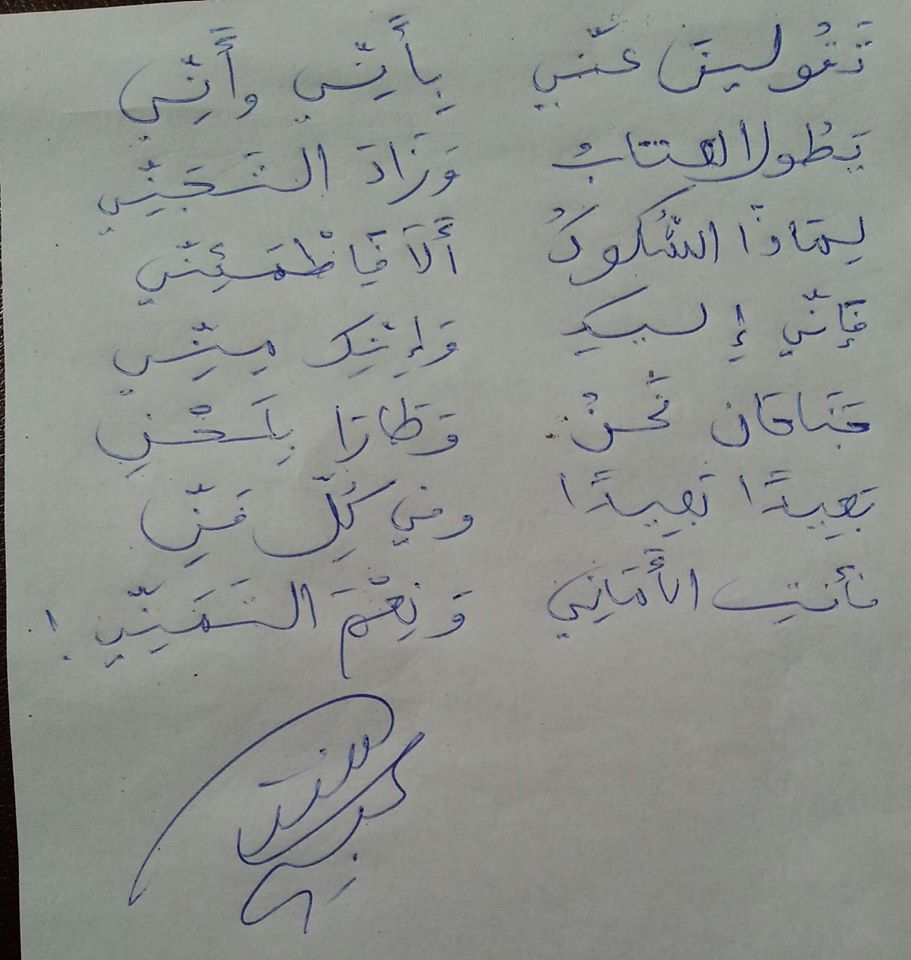 تَقُولينَ عَنّي بِأَنِّي وأَنِّي
يَطُولُ العتابُ وَزَادَ التَّجَنِّي
لِمَاذَا الشُّكوكُ أَلَا فَاطْمَئِنّي
فَإنّي إِليكِ وَإنْكِ مِنِّي
جَنَاحَانِ نَحْنُ وَطَارَا بِلَحْنِ
بَعِيدًا بَعِيدًا وفي كُلِّ فَنِّ
فأنتِ الأَمَانِي وَنِعْمَ التَّمَنِّي !